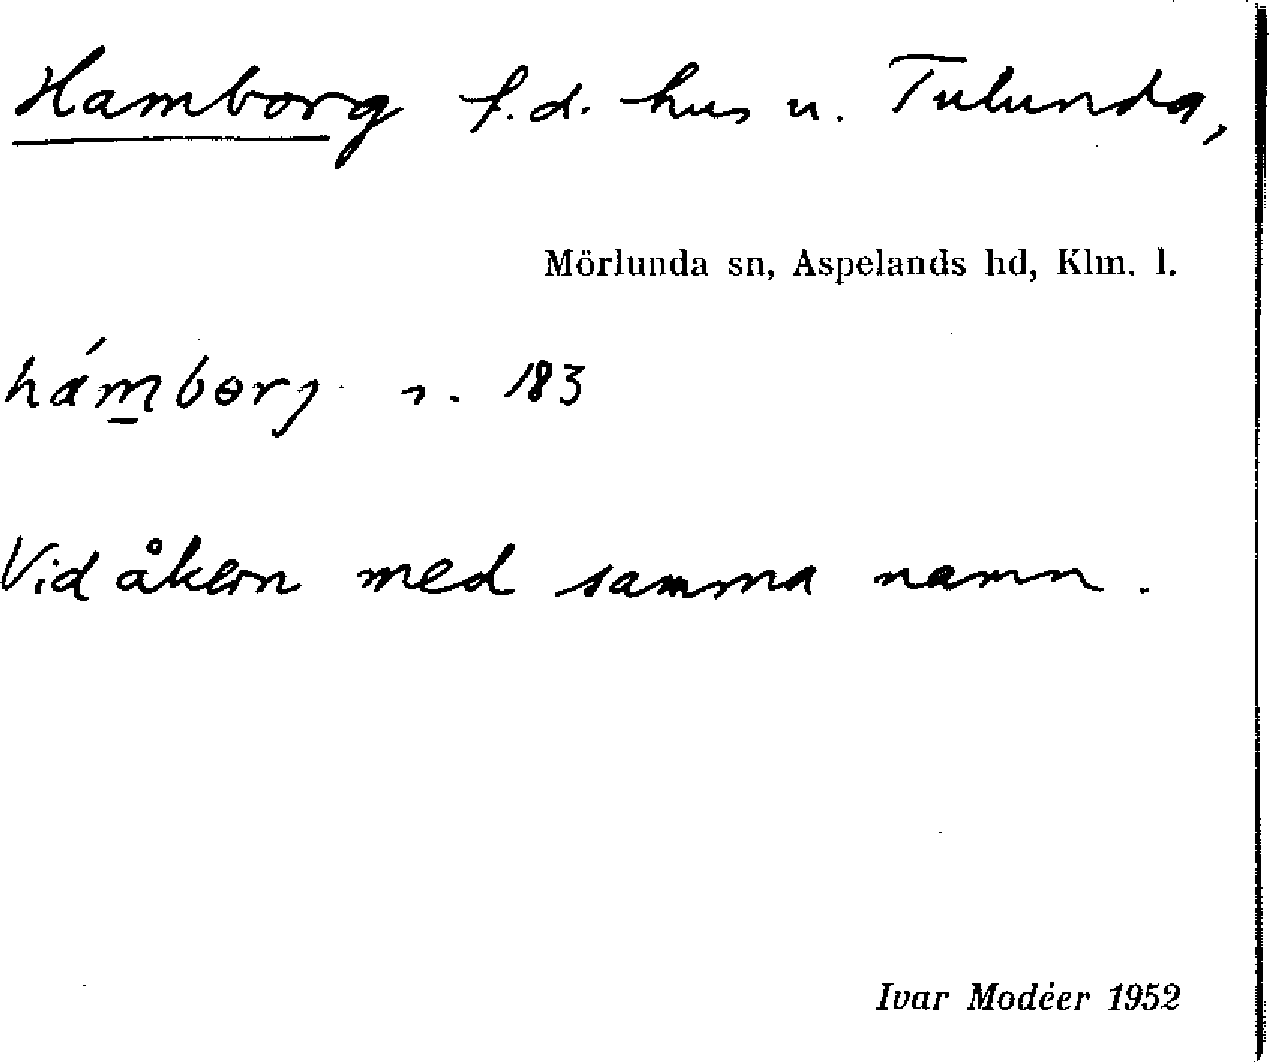 Hamborg f.d. hus u. Tulunda,
Mörlunda sn, Aspelands hd, Klm. l.
hámbɵrj 183
Vid åkern med samma namn.
Ivar Modéer 1952